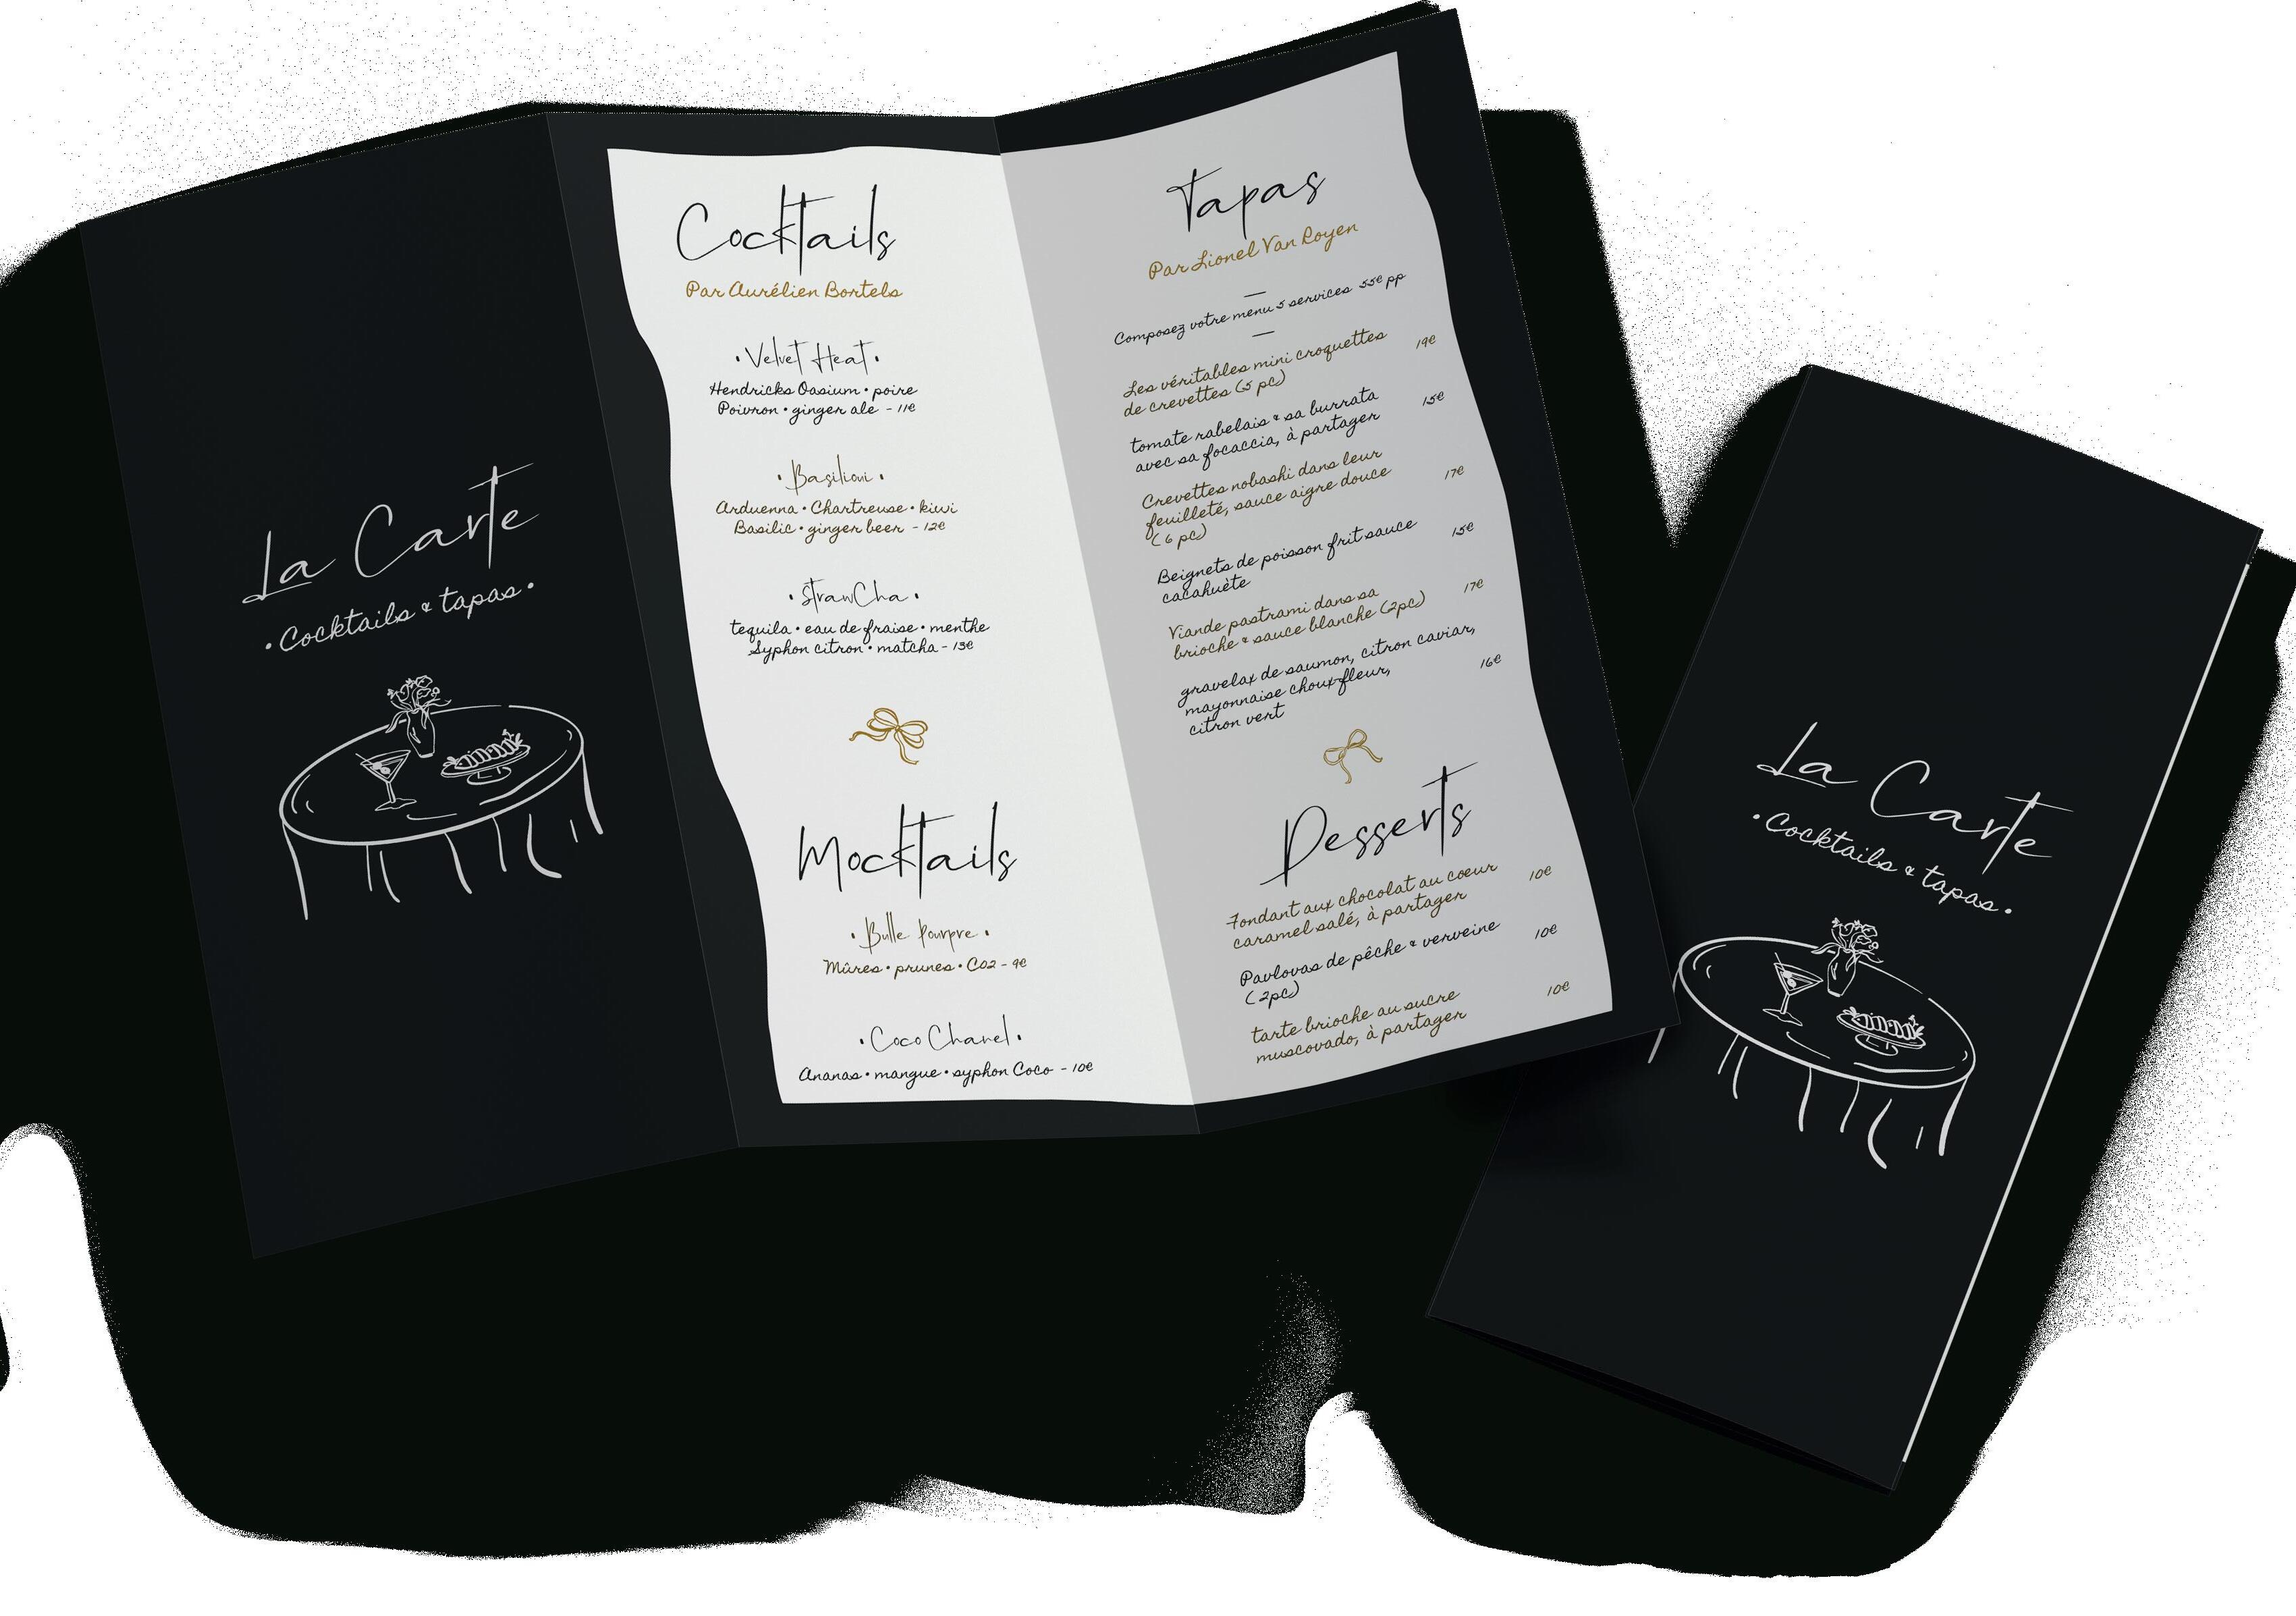 La Carte
• Cocktails & tapas •
Cocktails
Par Aurélien Bortels
• Velvet Heat •
Hendricks Oasium • poire
Poivron • ginger ale - 11€
• Basilioni •
Arduenna • Chartreuse • kiwi
Basilic • ginger beer - 12€
• StrawCha •
tequila • eau de fraise • menthe
Syphon citron • matcha - 13€
Mocktails
• Bulle Pourpre •
Mûres • prunes • CO2 - 9€
• Coco Chanel •
Ananas • mangue • syphon Coco - 10€
Tapas
Par Lionel Van Royen
Composez votre menu 5 services 55€ pp
Les véritables mini croquettes 19€
de crevettes (5 pc)
tomate rabelais & sa burrata 15€
avec sa focaccia, à partager
Crevettes nobashi dans leur 17€
feuilleté, sauce aigre douce
(6 pc)
Beignets de poisson frit sauce 15€
cacahuète
Viande pastrami dans sa 17€
brioche & sauce blanche (2pc)
gravelax de saumon, citron caviar, 16€
mayonnaise choux-fleur,
citron vert
Desserts
Fondant aux chocolat au coeur 10€
caramel salé, à partager
Pavlovas de pêche & verveine 10€
(2pc)
tarte brioche au sucre 10€
muscovado, à partager
La Carte
• Cocktails & tapas •